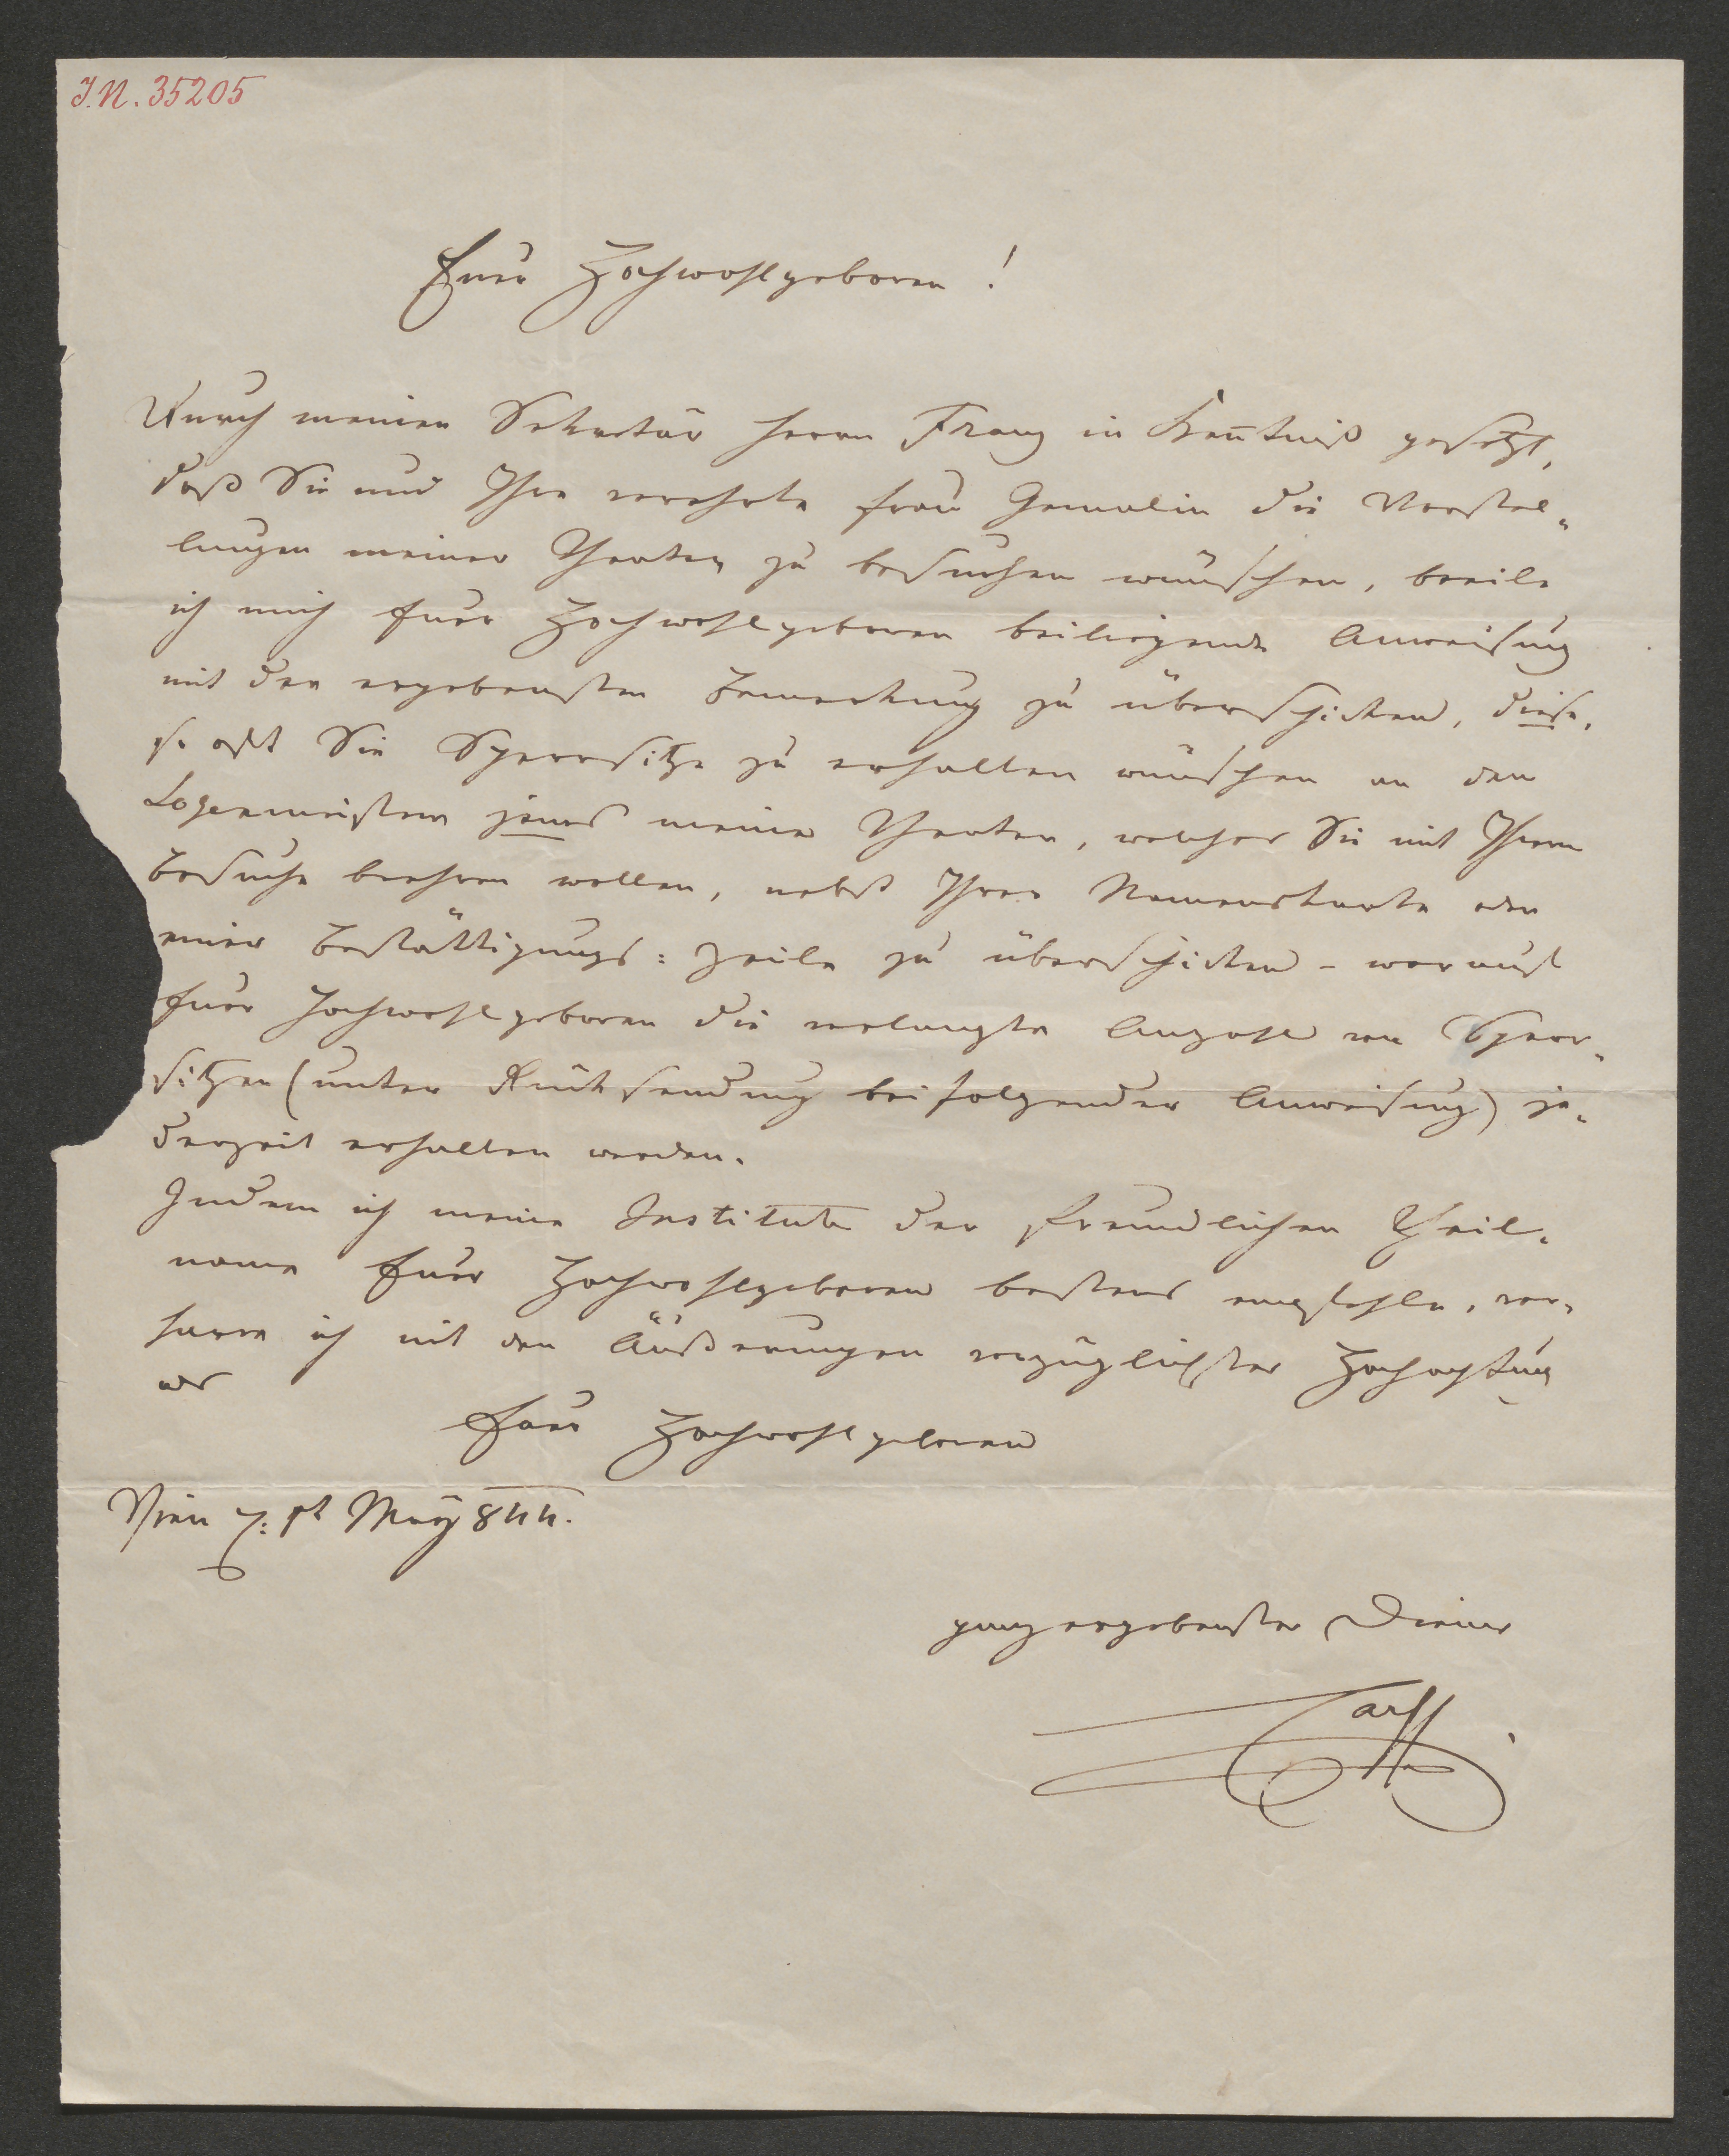 J.N. 35205
Euer Hochwohlgeboren!
Durch meinen Sekretär Herrn Franz in Kenntniß gesetzt,
daß Sie und Ihre verehrte Frau Gemalin die Vorstel-
lungen meiner Theater zu besuchen wünschen, beeile
ich mich Euer Hochwohlgeboren beiliegende Anweisung
mit der ergebensten Bemerkung zu überschicken, diese,
so oft Sie Sperrsitze zu erhalten wünschen an den
Logenmeister jenes meiner Theater, welches Sie mit Ihrem
Besuche beehren wollen, nebst Ihrer Namenskarte oder
einer Bestättigungs-Zeile zu überschicken - worauf
Euer Hochwohlgeboren die verlangte Anzahl von Sperr-
sitzen (unter Rücksendung beifolgender Anweisung) je-
derzeit erhalten werden.
Indem ich meine Institute der freundlichen Theil-
name Euer Hochwohlgeboren bestens empfehle, ver-
harre ich mit den Äußerungen vorzüglichster Hochachtung
als
Euer Hochwohlgeboren
Wien 7: May 844.
ganz ergebenster Diener
Carl